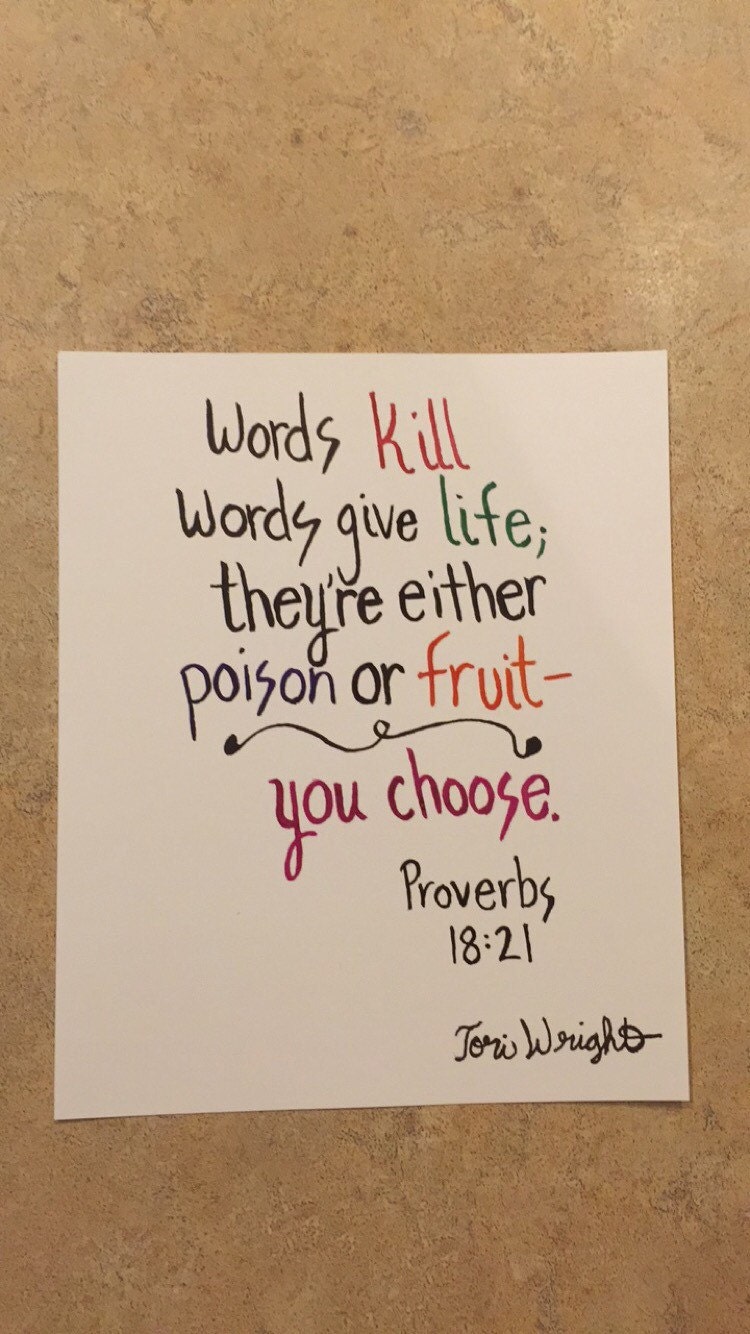 Words Kill
Words give life;
they're either
poison or fruit-
you choose.
Proverbs
18:21
Tori Wright